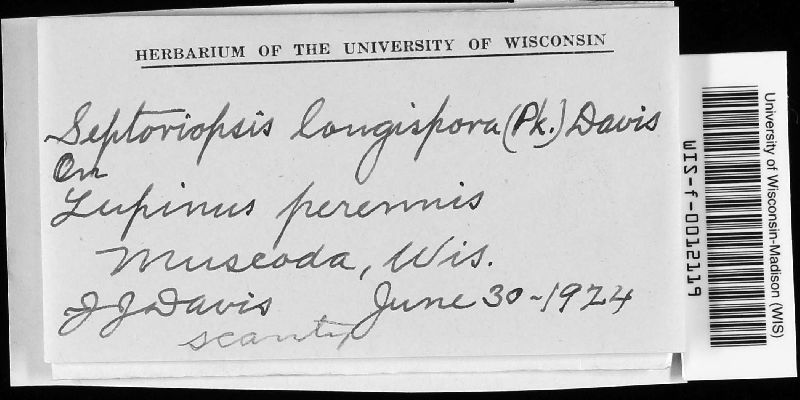 HERBARIUM OF THE UNIVERSITY OF WISCONSIN
Septoriopsis longispora (Pk.) Davis
On
Lupinus perennis
Muscoda, Wis.
J J Davis June 30-1924
scanty
University of Wisconsin-Madison (WIS)
WIS-f-0012119